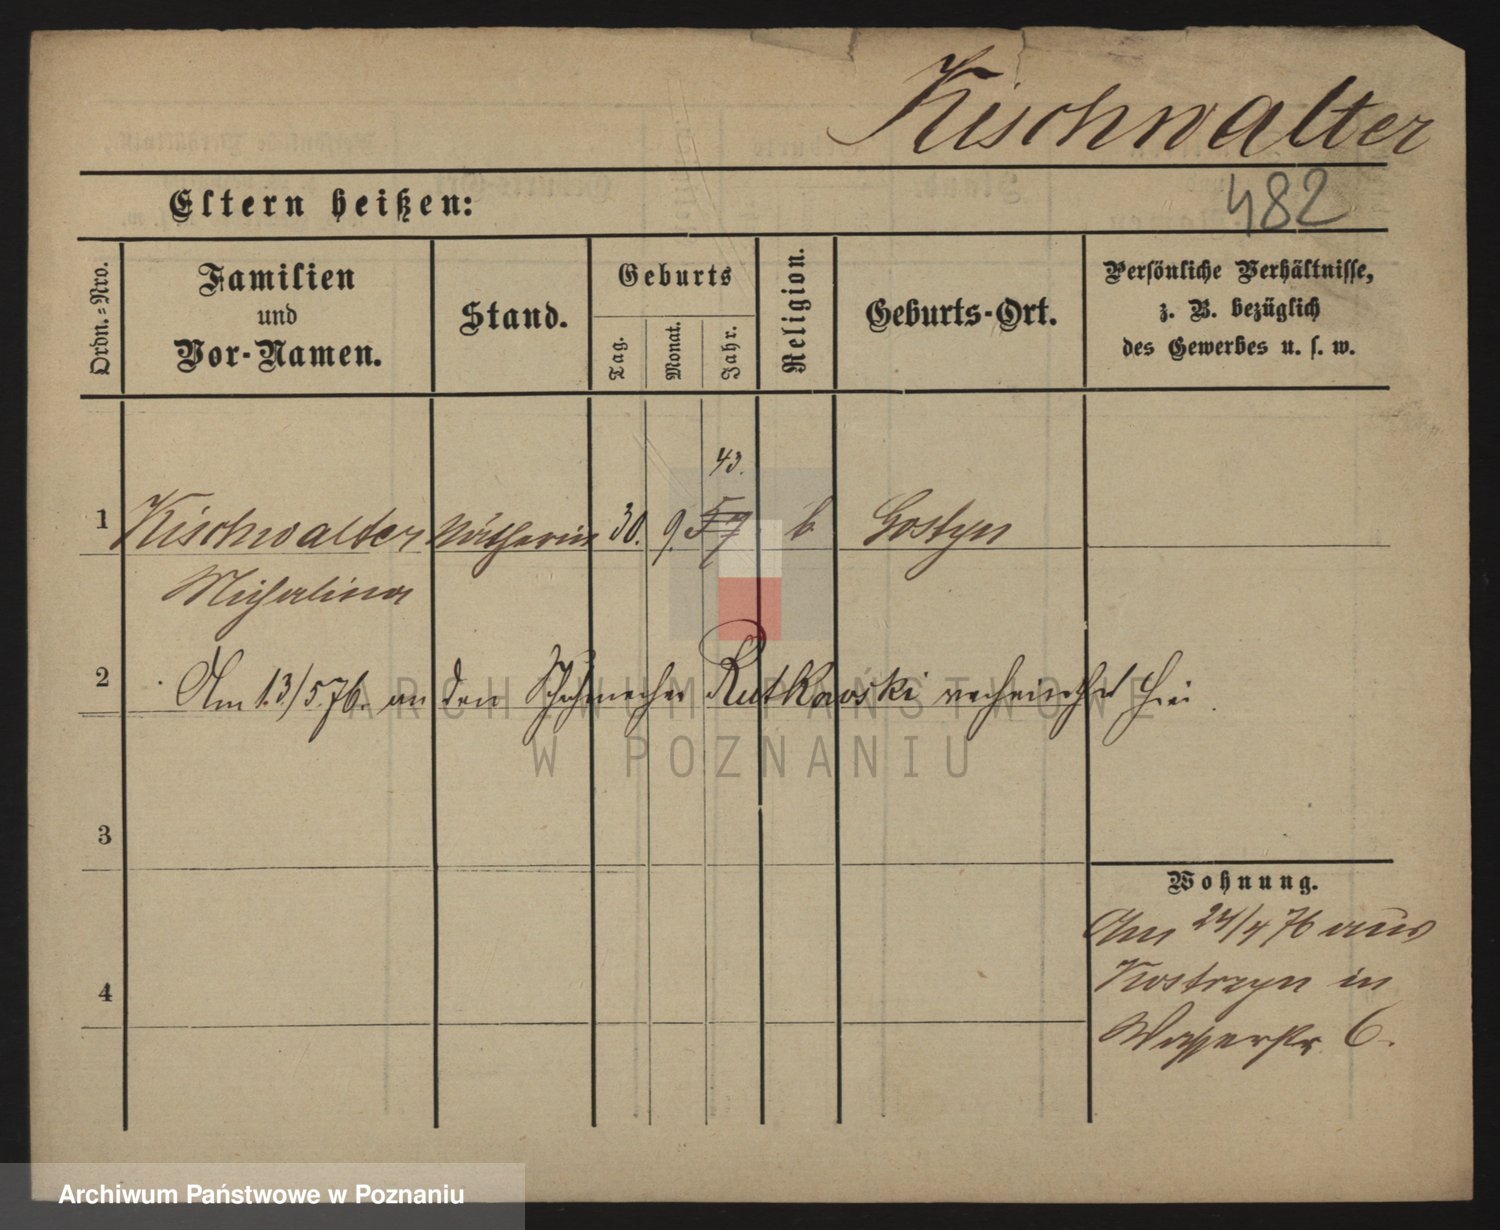 Kischwalter
482
Eltern heißen:
Ordn.-Nro.
Familien
und
Vor-Namen.
Stand.
Geburts
Tag.
Monat.
Jahr.
Religion.
Geburts-Ort.
Persönliche Verhältnisse,
z. B. bezüglich
des Gewerbes u. s. w.
43.
1 Kischwalter Nätherin 30. 9. 59 k Gostyn
Michalina
2 Am 13/5.76. an den Schuhmacher Rutkowski verheirathet hier
3
Wohnung.
Am 24/4 76 aus
Kostrzyn in
4
Wasserstr. 6.
ARCHIWUM PAŃSTWOWE
W POZNANIU
Archiwum Państwowe w Poznaniu